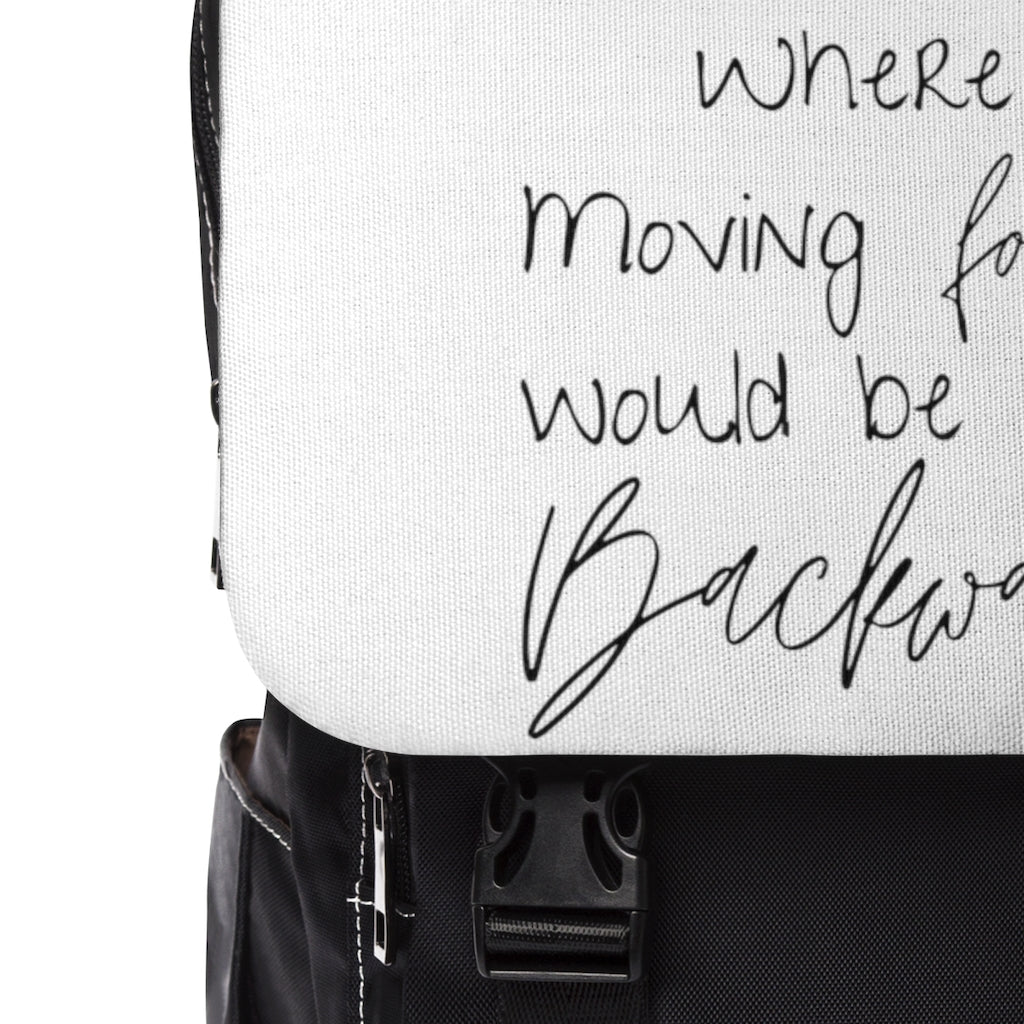 where
moving fo
would be
Backwa